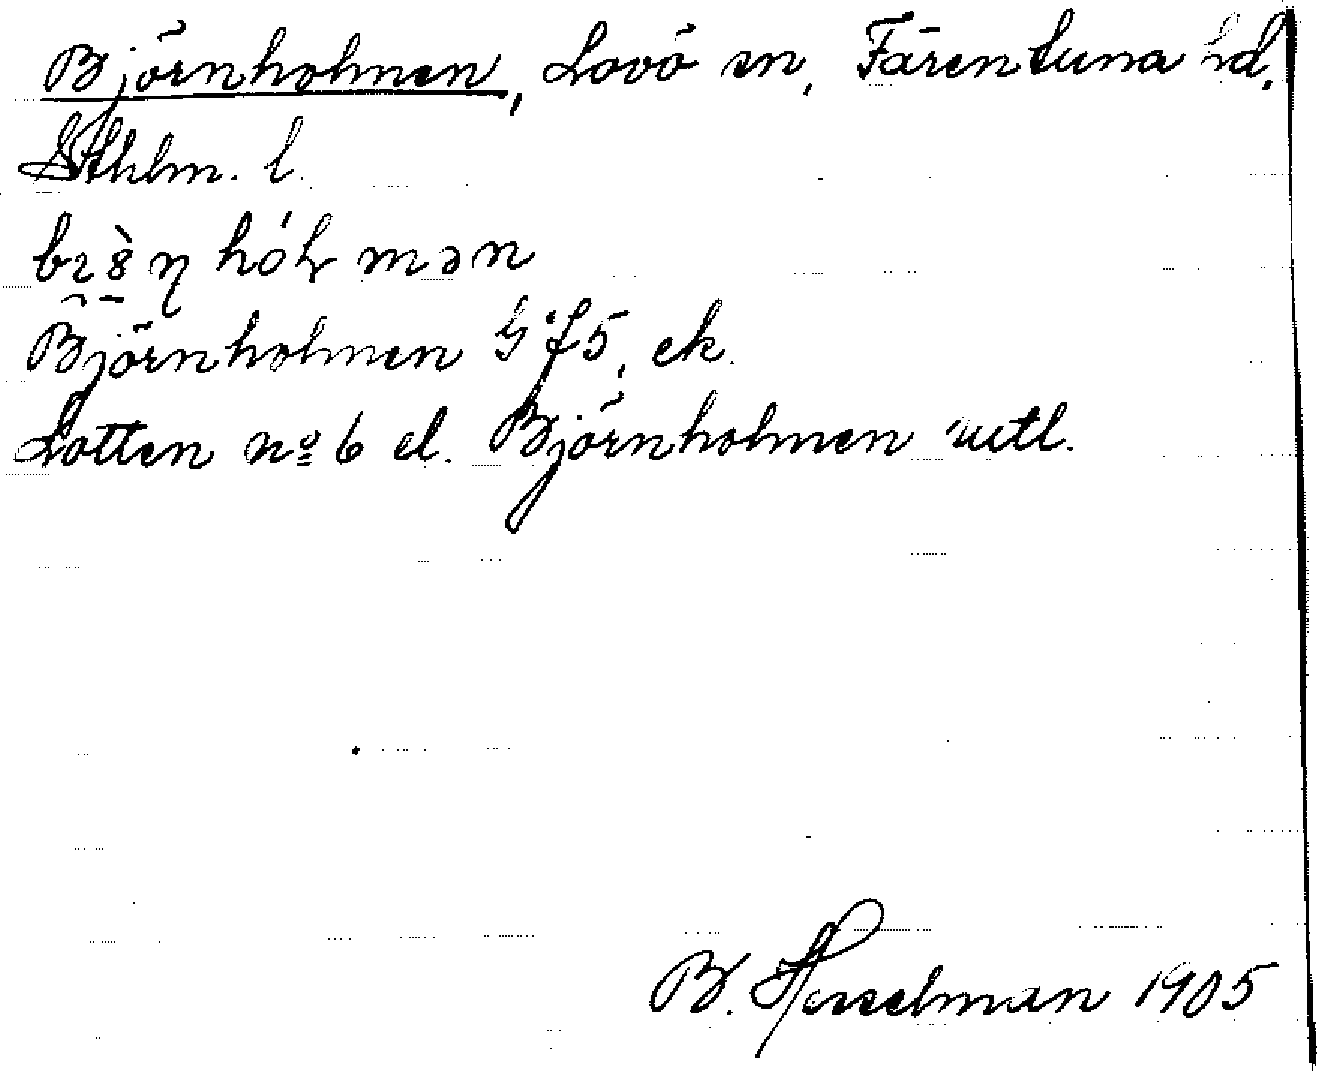 Björnholmen, Lovö sn, Färentuna hd,
Sthlm. l.
Björnholmen Gf5, ek.
Lotten nº 6 el. Björnholmen utl.
B. Hesselman 1905